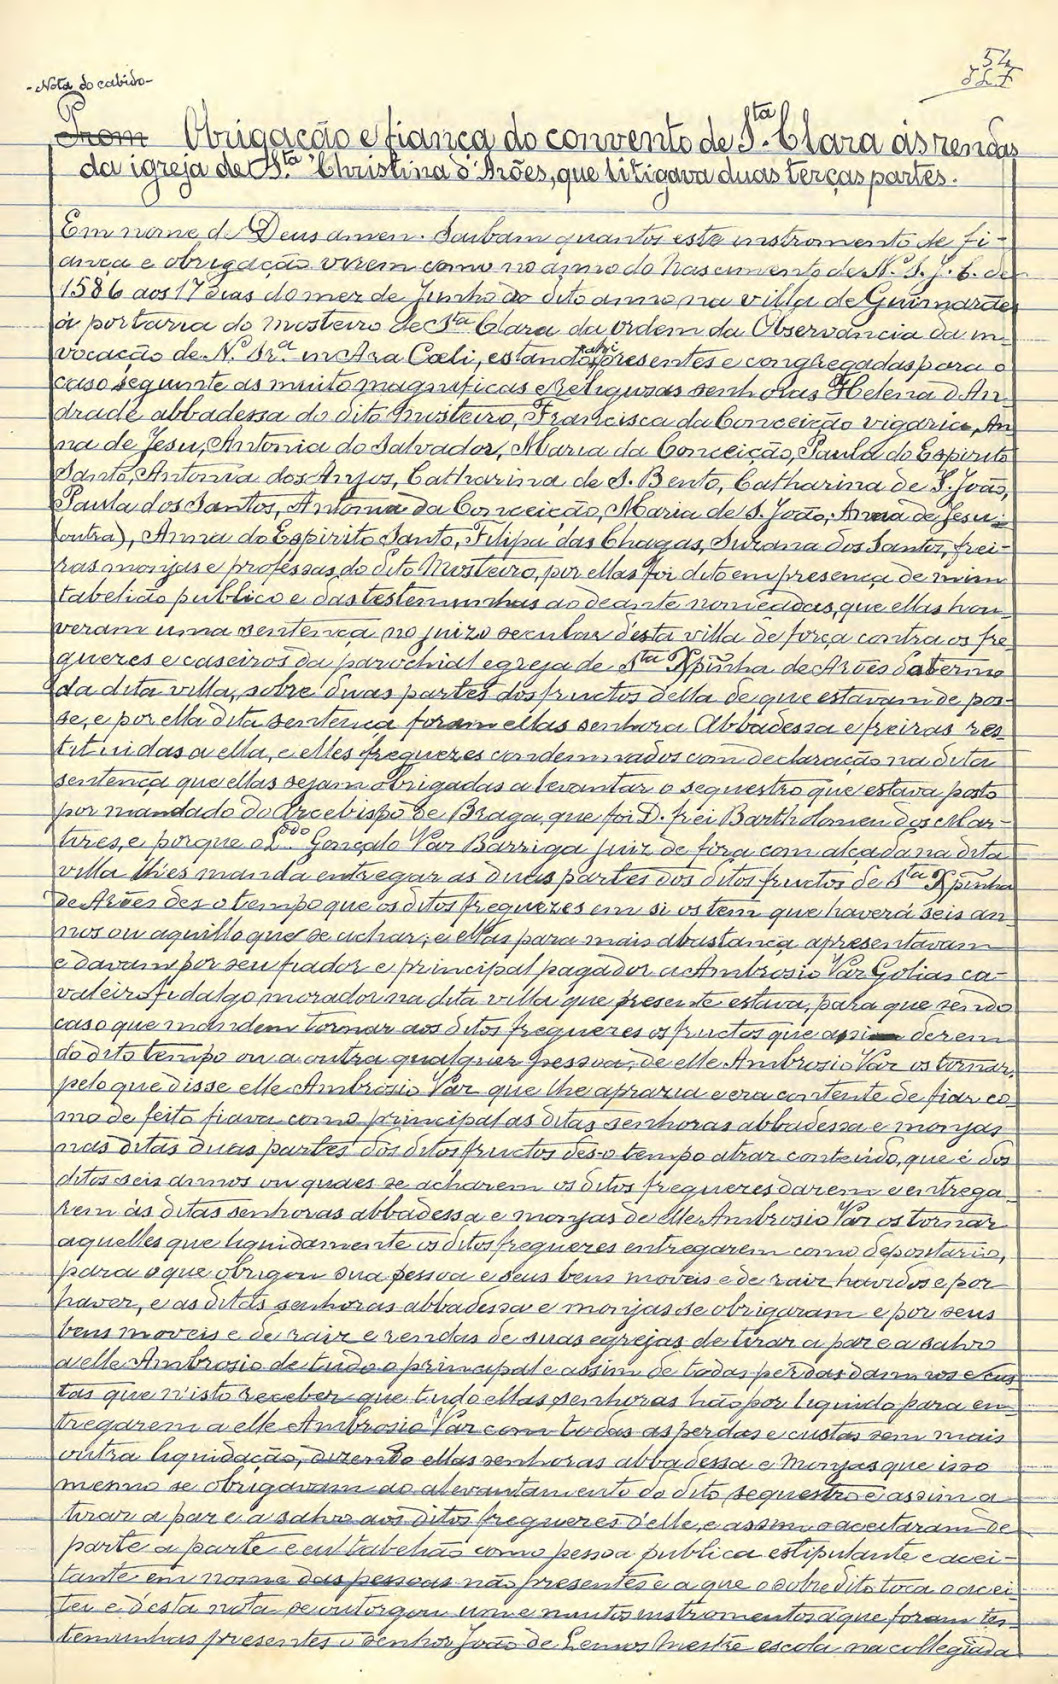 54
-Nota do cabido-
Prom Obrigação e fiança do convento de Sta. Clara ás rendas
da igreja de Sta. Christina d'Arões, que litigava duas terças partes.
Em nome de Deus amen. Saibam quantos este instromento de fi-
ança e obrigação virem como no anno do Nascimento de N. S. J. C. de
1586 aos 17 dias do mez de Junho do dito anno, na villa de Guimarães
á portaria do mosteiro de Sta Clara da ordem da Observancia da in-
vocação de N. Sra. in Ara Cœli, estando ahi presentes e congregadas para o
caso seguinte as muito magnificas e Religiozas senhoras Helena d'An-
drade abbadessa do dito Mosteiro, Francisca da Conceição vigaria, An-
na de Jesu, Antonia do Salvador, Maria da Conceição, Paula do Espirito
Santo, Antonia dos Anjos, Catharina de S. Bento, Catharina de S. João,
Paula dos Santos, Antonia da Conceição, Maria de S. João, Anna de Jesu
(outra), Anna do Espirito Santo, Filipa das Chagas, Suzana dos Santos, frei-
ras monjas e professas do dito Mosteiro, por ellas foi dito em presença de mim
tabelião publico e das testemunhas ao deante nomeadas, que ellas hou-
veram uma sentença no juizo secular d'esta villa de força contra os fre-
guezes e caseiros da parochial egreja de Sta Xpinha de Arões do termo
da dita villa, sobre duas partes dos fructos della de que estavam de pos-
se, e por ella dita sentença foram ellas senhora Abbadessa e freiras res-
tituidas a ella, e elles freguezes condemnados com declaração na dita
sentença que ellas sejam obrigadas a levantar o sequestro que estava posto
por mandado do Arcebispo de Braga, que foi D. frei Bartholomeu dos Mar-
tires, e porque o Ldo Gonçalo Vaz Barriga juiz de fóra com alçada na dita
villa lhes manda entregar as duas partes dos ditos fructos de Sta Xpinha
de Arões des o tempo que os ditos freguezes em si os tem que haverá seis an-
nos ou aquillo que se achar; e ellas para mais abastança apresentavam
e davam por seu fiador e principal pagador a Ambrosio Vaz Golias ca-
valeiro fidalgo morador na dita villa que presente estava, para que sendo
caso que mandem tornar aos ditos freguezes os fructos que assim derem
do dito tempo ou a outra qualquer pessoa, de elle Ambrosio Vaz os tornar,
pelo que disse elle Ambrosio Vaz que lhe aprazia e era contente de fiar co-
mo de feito fiava como principal as ditas senhoras abbadessa e monjas
nas ditas duas partes dos ditos fructos des o tempo atraz conteúdo, que é dos
ditos seis annos ou quaes se acharem os ditos freguezes darem e entrega-
rem ás ditas senhoras abbadessa e monjas de elle Ambrosio Vaz os tornar
aquelles que liquidamente os ditos freguezes entregarem como depositario,
para o que obrigou sua pessoa e seus bens moveis e de raiz havidos e por
haver, e as ditas senhoras abbadessa e monjas se obrigaram e por seus
bens moveis e de raiz e rendas de suas egrejas de tirar a paz e a salvo
a elle Ambrosio de tudo o principal e assim de todas perdas damnos e cus-
tas que n'isto receber que tudo ellas senhoras hão por liquido para en-
tregarem a elle Ambrosio Vaz com todas as perdas e custas sem mais
outra liquidação, dizendo ellas senhoras abbadessa e Monjas que isso
mesmo se obrigavam ao alevantamento do dito sequestro e assim a
tirar a paz e a salvo aos ditos freguezes d'elle, e assim o aceitaram de
parte a parte e eu tabelião como pessoa publica estipulante e acei-
tante em nome das pessoas não presentes e a que o sobredito toca o acei-
tei e d'esta nota se outorgou um e muitos instromentos a que foram tes-
temunhas presentes o senhor João de Lemos Mestre escola na collegiada